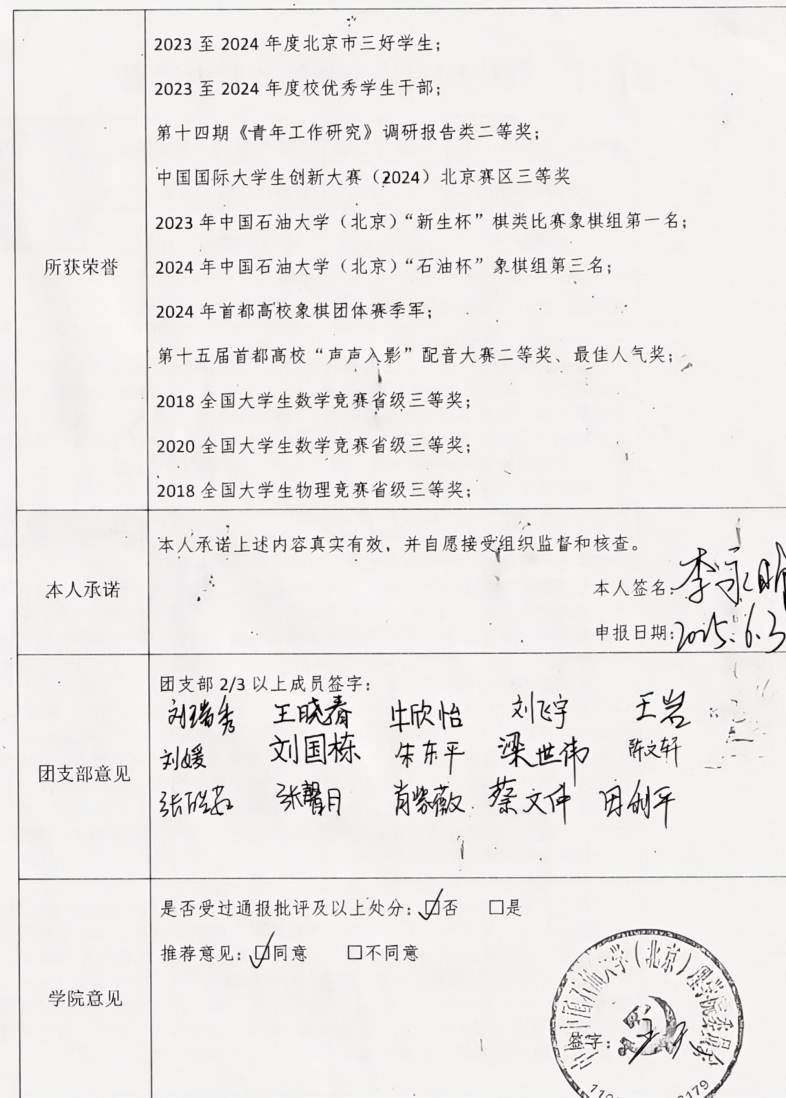 2023 至 2024 年度北京市三好学生；
2023 至 2024 年度校优秀学生干部；
第十四期《青年工作研究》调研报告类二等奖；
中国国际大学生创新大赛（2024）北京赛区三等奖
2023 年中国石油大学（北京）“新生杯”棋类比赛象棋组第一名；
2024 年中国石油大学（北京）“石油杯”象棋组第三名；
所获荣誉
2024 年首都高校象棋团体赛季军；
第十五届首都高校“声声入影”配音大赛二等奖、最佳人气奖；
2018 全国大学生数学竞赛省级三等奖；
2020 全国大学生数学竞赛省级三等奖；
2018 全国大学生物理竞赛省级三等奖；
本人承诺
本人承诺上述内容真实有效，并自愿接受组织监督和核查。
本人签名：李永昕
申报日期：2025.6.3
团支部意见
团支部 2/3 以上成员签字：
刘瑞秀 王晓春 牛欣怡 刘飞宇 王岩
刘媛 刘国栋 朱东平 梁世伟 陈文轩
张馨月 肖紫薇 蔡文伟 田利平
学院意见
是否受过通报批评及以上处分：☑否 □是
推荐意见：☑同意 □不同意
签字：
石油大学（北京）理学院委员会